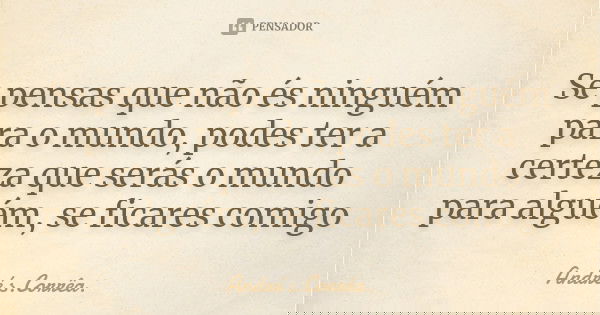 PENSADOR
Se pensas que não és ninguém
para o mundo, podes ter a
certeza que serás o mundo
para alguém, se ficares comigo
Andrés.Corrêa.